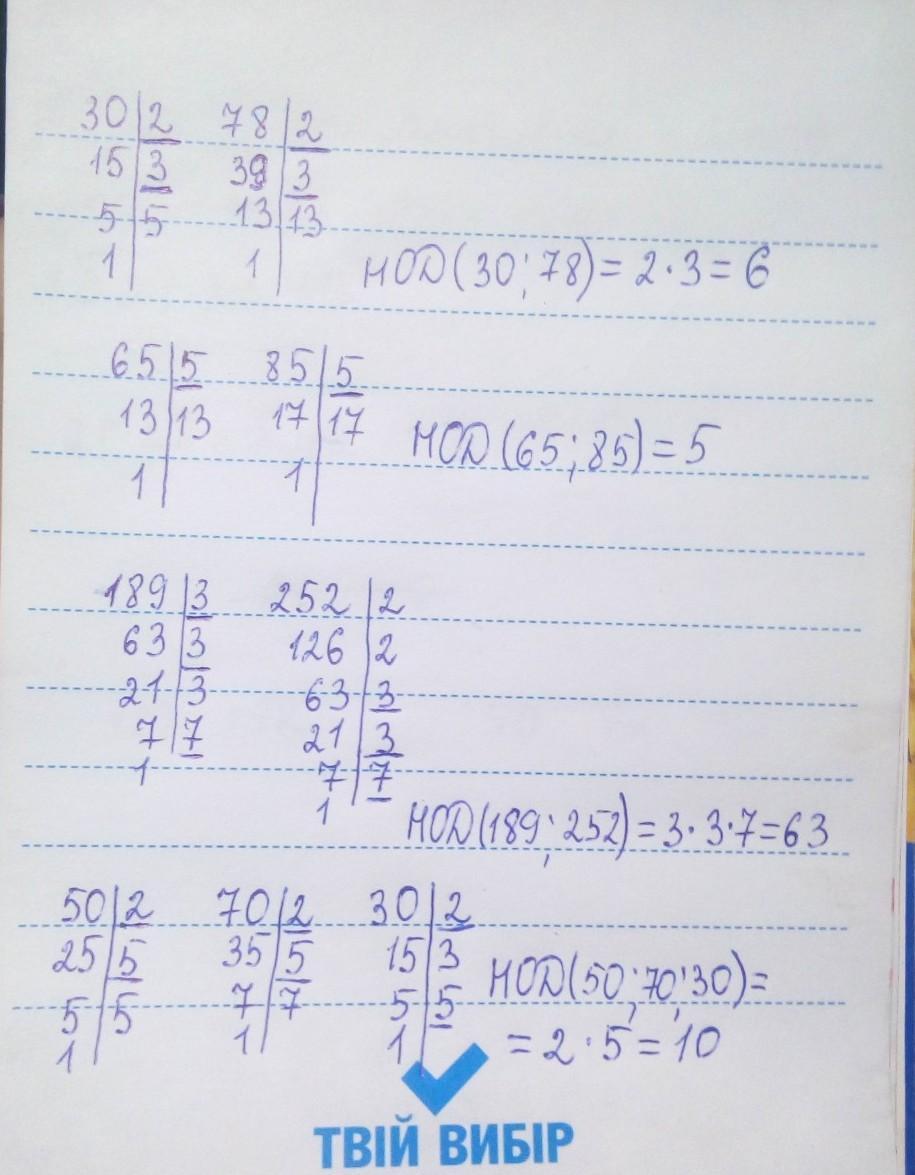 30 | 2 78 | 2
15 | 3 39 | 3
5 | 5 13 | 13
1 | 1 |
НОД(30;78)=2·3=6
65 | 5 85 | 5
13 | 13 17 | 17
1 | 1 |
НОД(65;85)=5
189 | 3 252 | 2
63 | 3 126 | 2
21 | 3 63 | 3
7 | 7 21 | 3
1 7 | 7
1
НОД(189;252)=3·3·7=63
50 | 2 70 | 2 30 | 2
25 | 5 35 | 5 15 | 3
5 | 5 7 | 7 5 | 5
1 | 1 | 1 |
НОД(50;70;30)=
=2·5=10
ТВІЙ ВИБІР